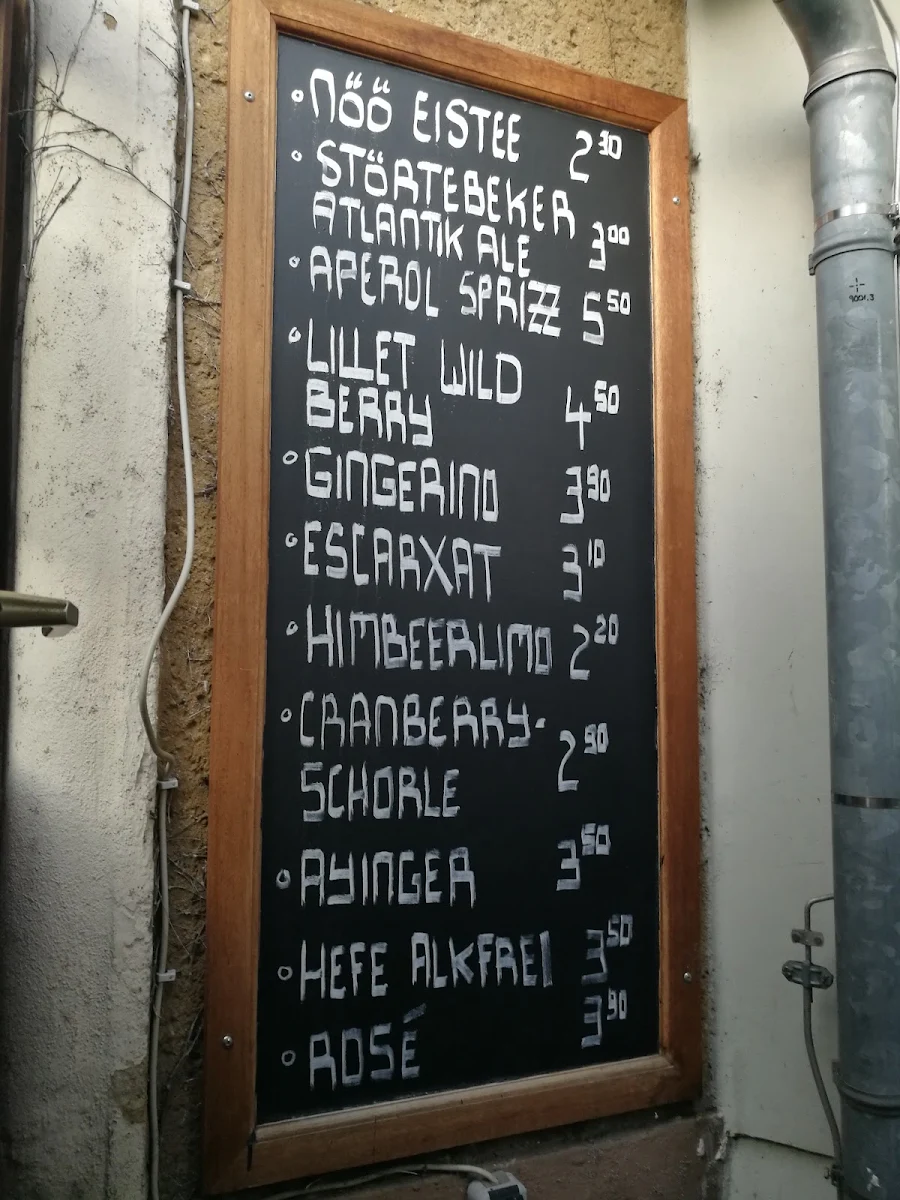 NÖÖ EISTEE 2 30
STÖRTEBEKER
ATLANTIK ALE 3 00
APEROL SPRIZZ 5 50
LILLET WILD
BERRY 4 50
GINGERINO 3 90
ESCARXAT 3 10
HIMBEERLIMO 2 20
CRANBERRY-
SCHORLE 2 90
AYINGER 3 50
HEFE ALKFREI 3 50
ROSÉ 3 90
9001.3